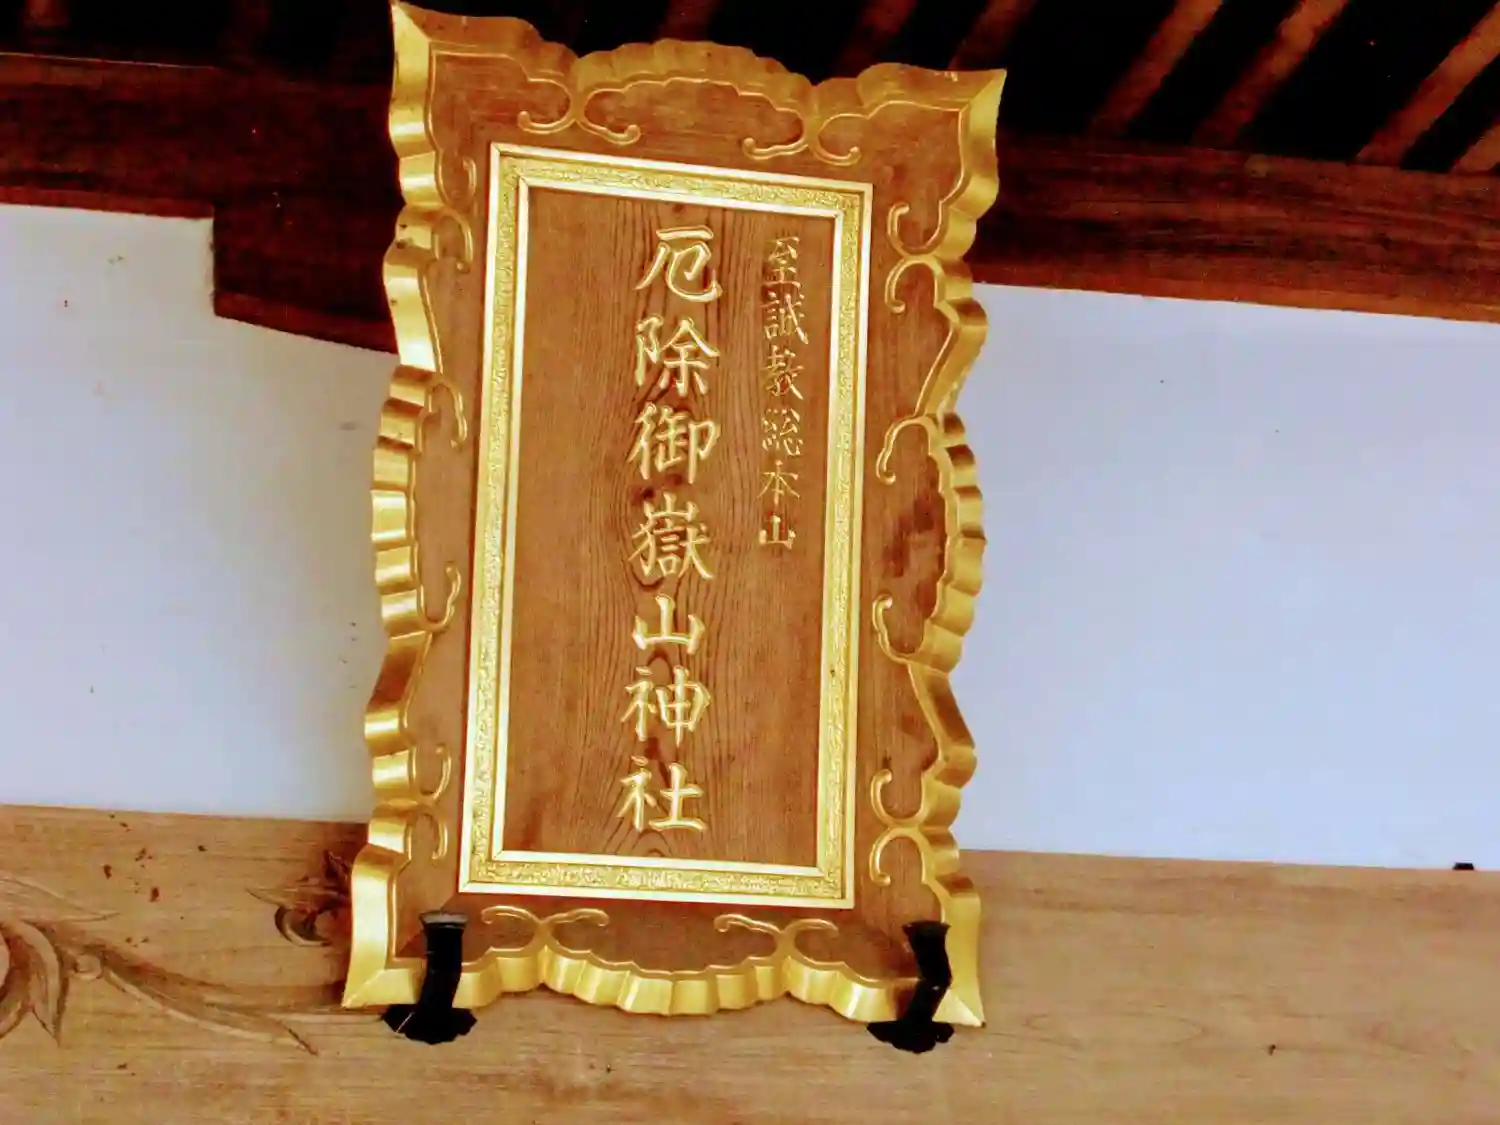 至誠教総本山
厄除御嶽山神社